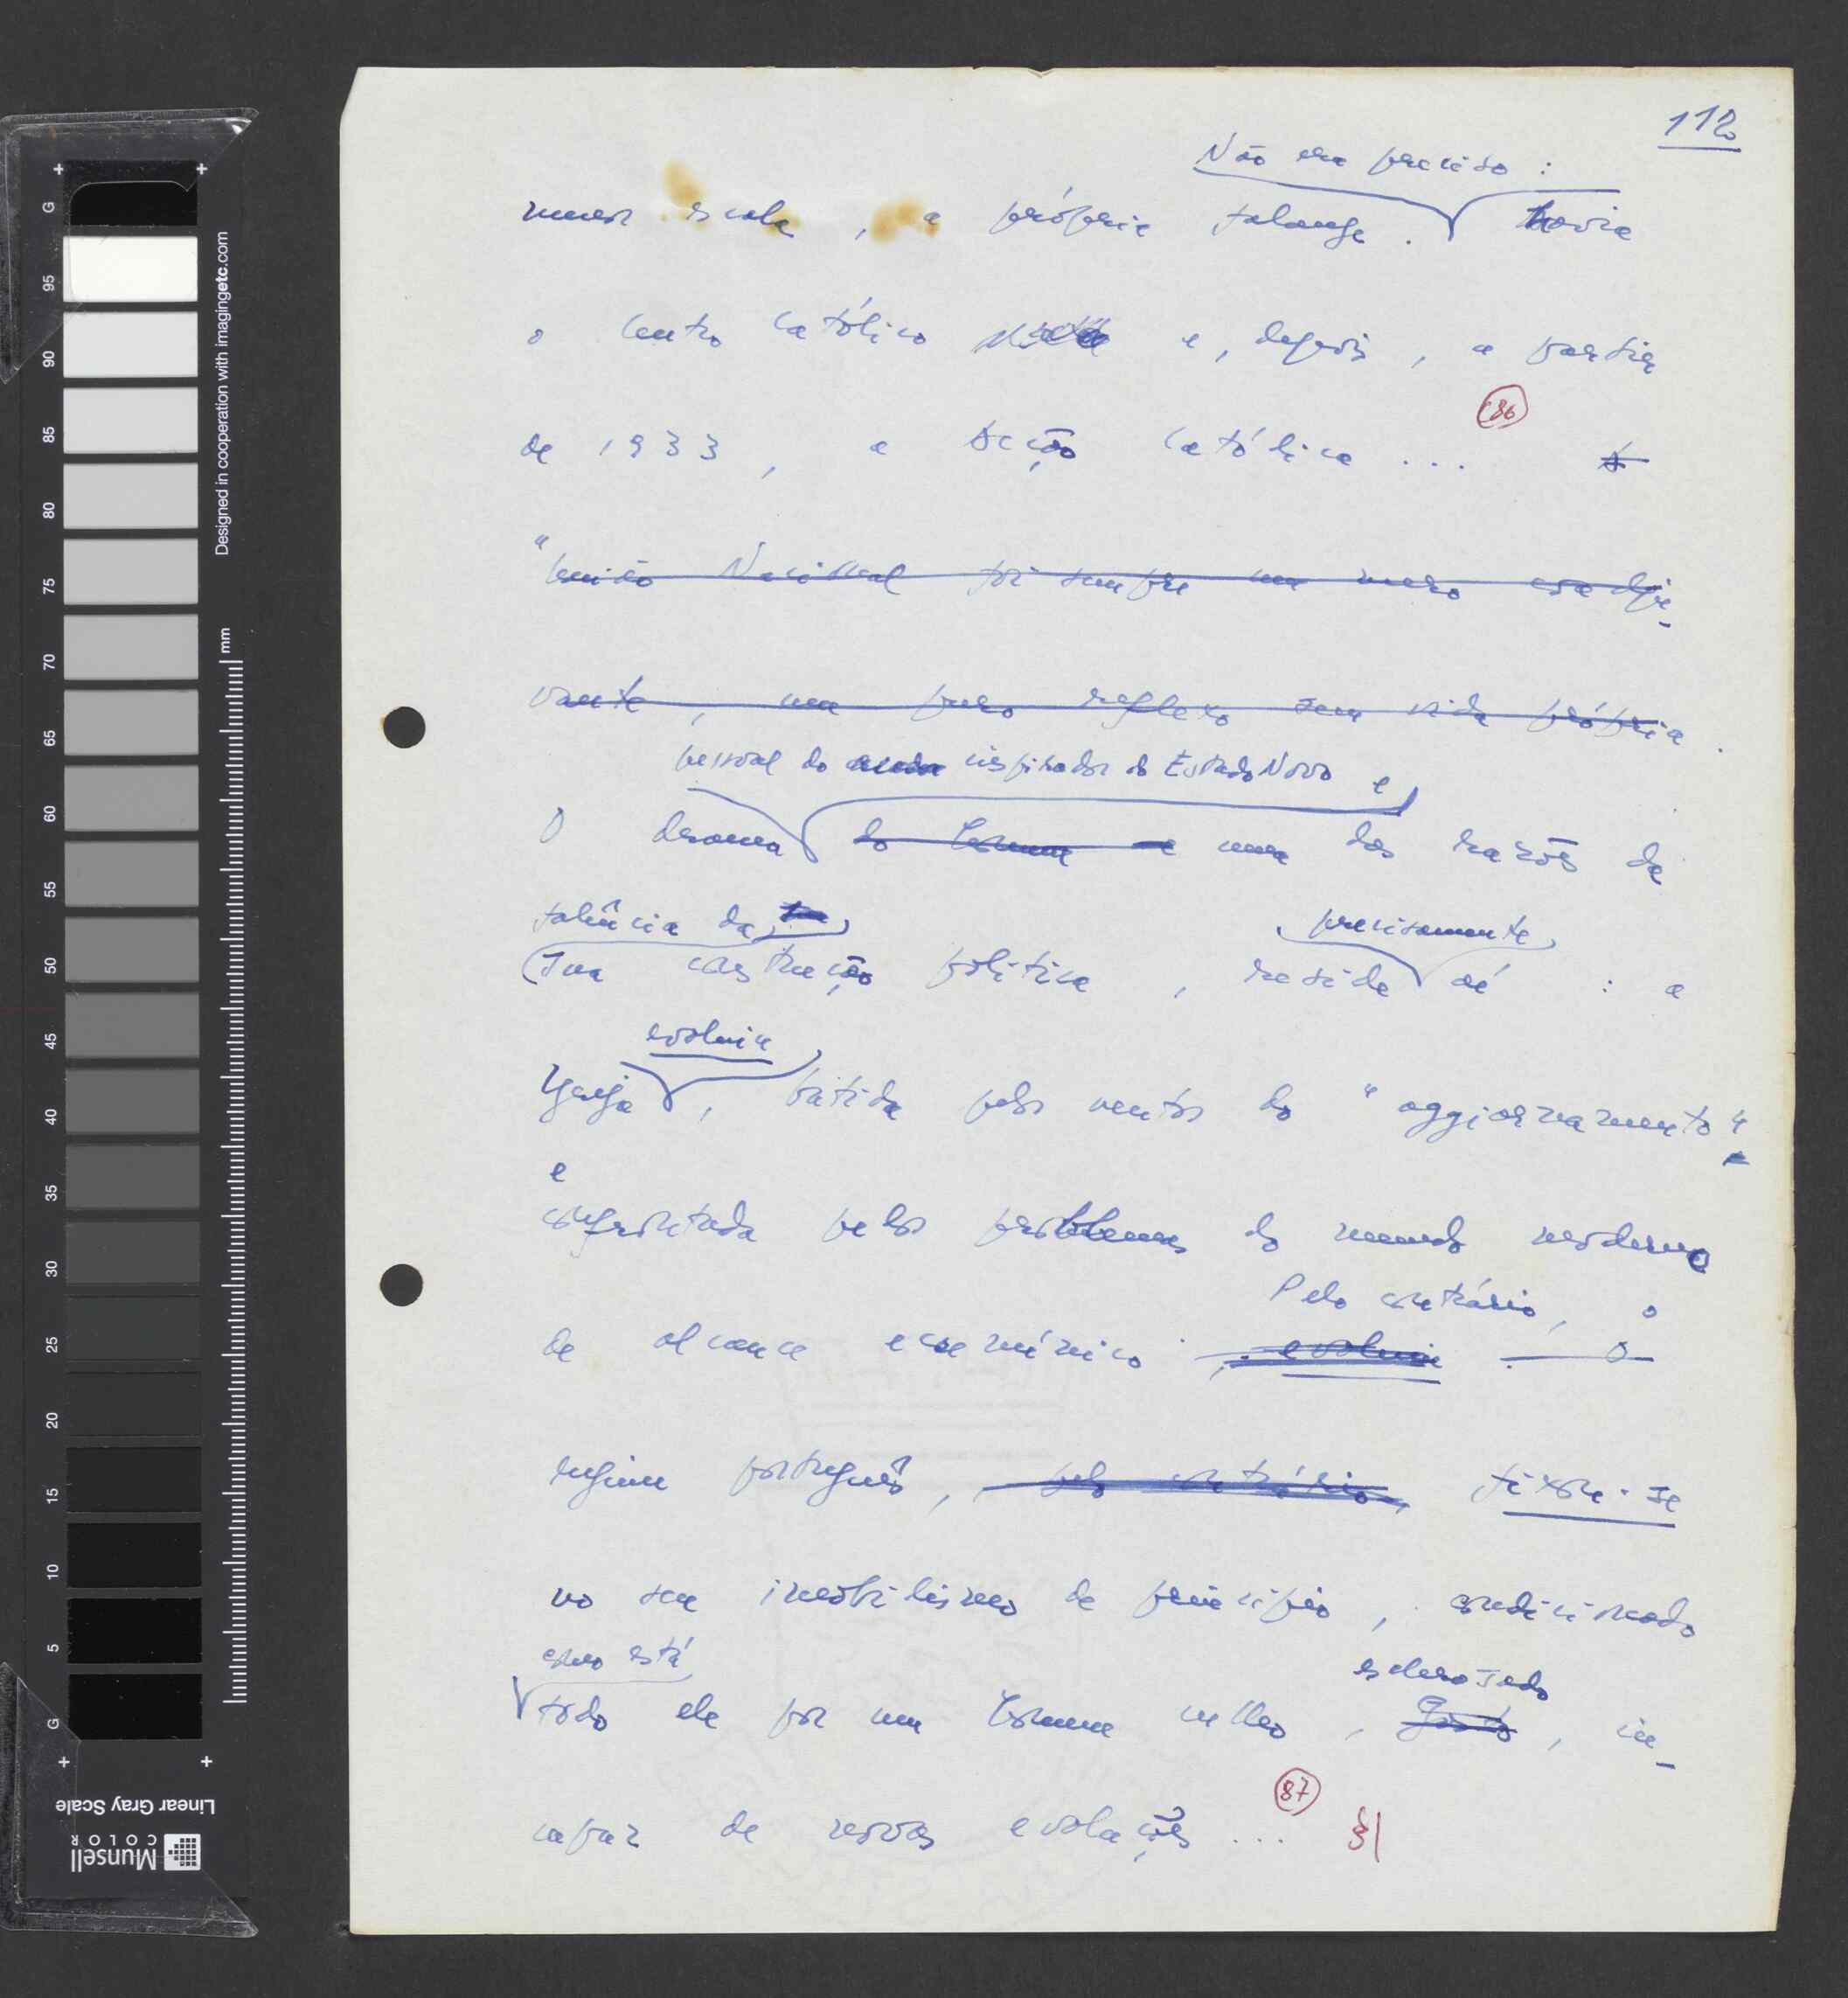 112
Não era preciso :
menor escala, a própria falange. havia
o Centro Católico e, depois, a partir
86
de 1933, a Acção Católica ... A
"União Nacional foi sempre um mero coadju-
vante, um puro reflexo sem vida própria.
pessoal do inspirador do Estado Novo e
O drama do homem e uma das razões da
falência da
sua construção política, reside aí : a
precisamente
evoluia
Igreja, batida pelos ventos do "aggiornamento"
e
confrontada pelos problemas do mundo moderno
Pelo contrário, o
de alcance ecuménico, evoluia. O
regime português, pelo contrário, fixou-se
no seu imobilismo de princípio, condicionado
como está
todo ele por um homem velho, gasto, in-
esclerosado
87
capaz de novas evoluções ... §|
G 95 90 85 80 75 70 65 60 55 50 45 40 35 30 25 20 15 10 5 G
mm
Designed in cooperation with imagingetc.com
Linear Gray Scale
Munsell
COLOR